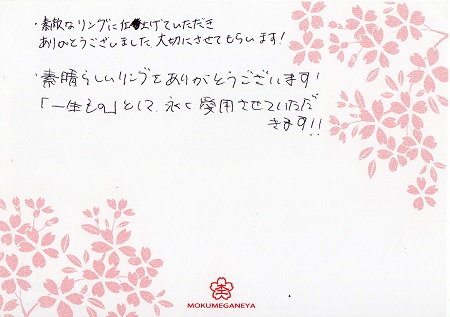 ・素敵なリングに仕上げていただき
ありがとうございました。大切にさせてもらいます!
・素晴らしいリングをありがとうございます!
「一生もの」として、永く愛用させていただ
きます!!
MOKUMEGANEYA